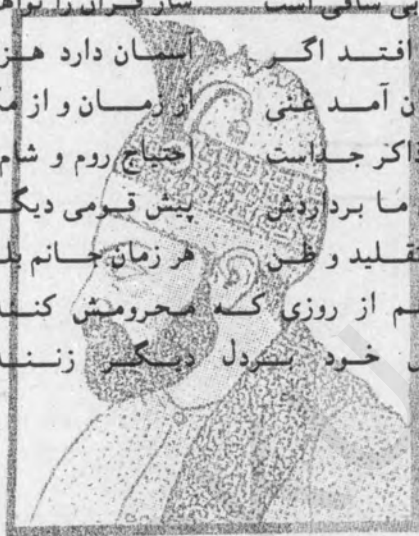 ساقی است ساز قرآن را
افتد اگر آسمان دارد
آمد غنی از زمان و از
ذاکر جداست احتیاج روم و شام
ما برداردش پیش قومی
تقلید و ظن هر زمان جانم
از روزی که محرومش
خود بردل دیگر